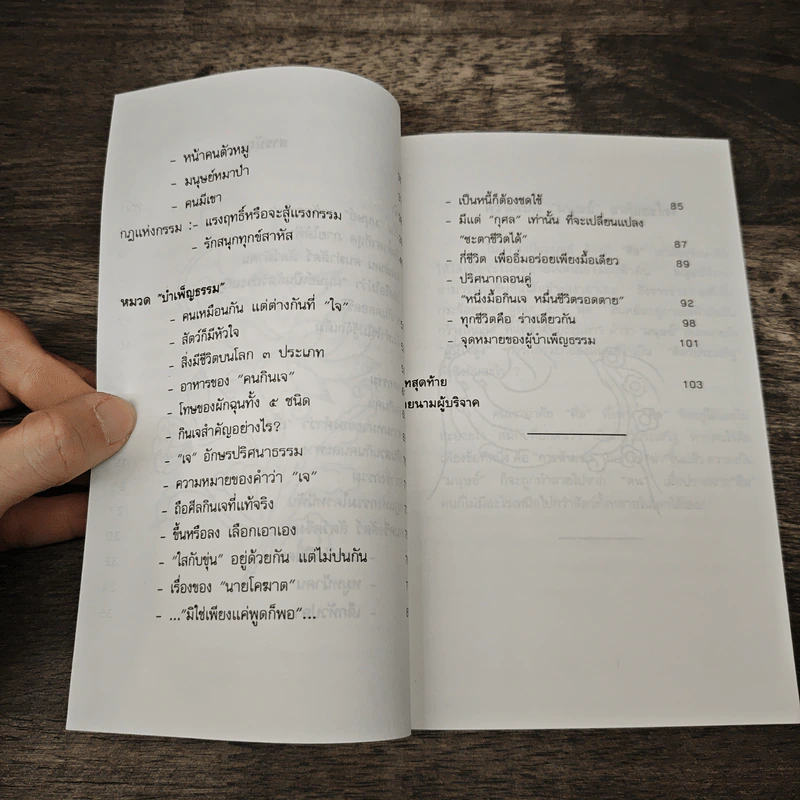 - หน้าคนตัวหมู
- มนุษย์หมาป่า
- คนมีเขา
กฎแห่งกรรม :- แรงฤทธิ์หรือจะสู้แรงกรรม
- รักสนุกทุกข์สาหัส
หมวด "บำเพ็ญธรรม"
- คนเหมือนกัน แต่ต่างกันที่ "ใจ"
- สัตว์ก็มีหัวใจ
- สิ่งมีชีวิตบนโลก ๓ ประเภท
- อาหารของ "คนกินเจ"
- โทษของผักฉุนทั้ง ๕ ชนิด
- กินเจสำคัญอย่างไร?
- "เจ" อักษรปริศนาธรรม
- ความหมายของคำว่า "เจ"
- ถือศีลกินเจที่แท้จริง
- ขึ้นหรือลง เลือกเอาเอง
- "ใสกับขุ่น" อยู่ด้วยกัน แต่ไม่ปนกัน
- เรื่องของ "นายโคฆาต"
- ..."มิใช่เพียงแค่พูดก็พอ"...
- เป็นหนี้ก็ต้องชดใช้ 85
- มีแต่ "กุศล" เท่านั้น ที่จะเปลี่ยนแปลง
"ชะตาชีวิตได้" 87
- กี่ชีวิต เพื่ออิ่มอร่อยเพียงมื้อเดียว 89
- ปริศนากลอนคู่
"หนึ่งมื้อกินเจ หมื่นชีวิตรอดตาย" 92
- ทุกชีวิตคือ ร่างเดียวกัน 98
- จุดหมายของผู้บำเพ็ญธรรม 101
ทสุดท้าย 103
ยนามผู้บริจาค